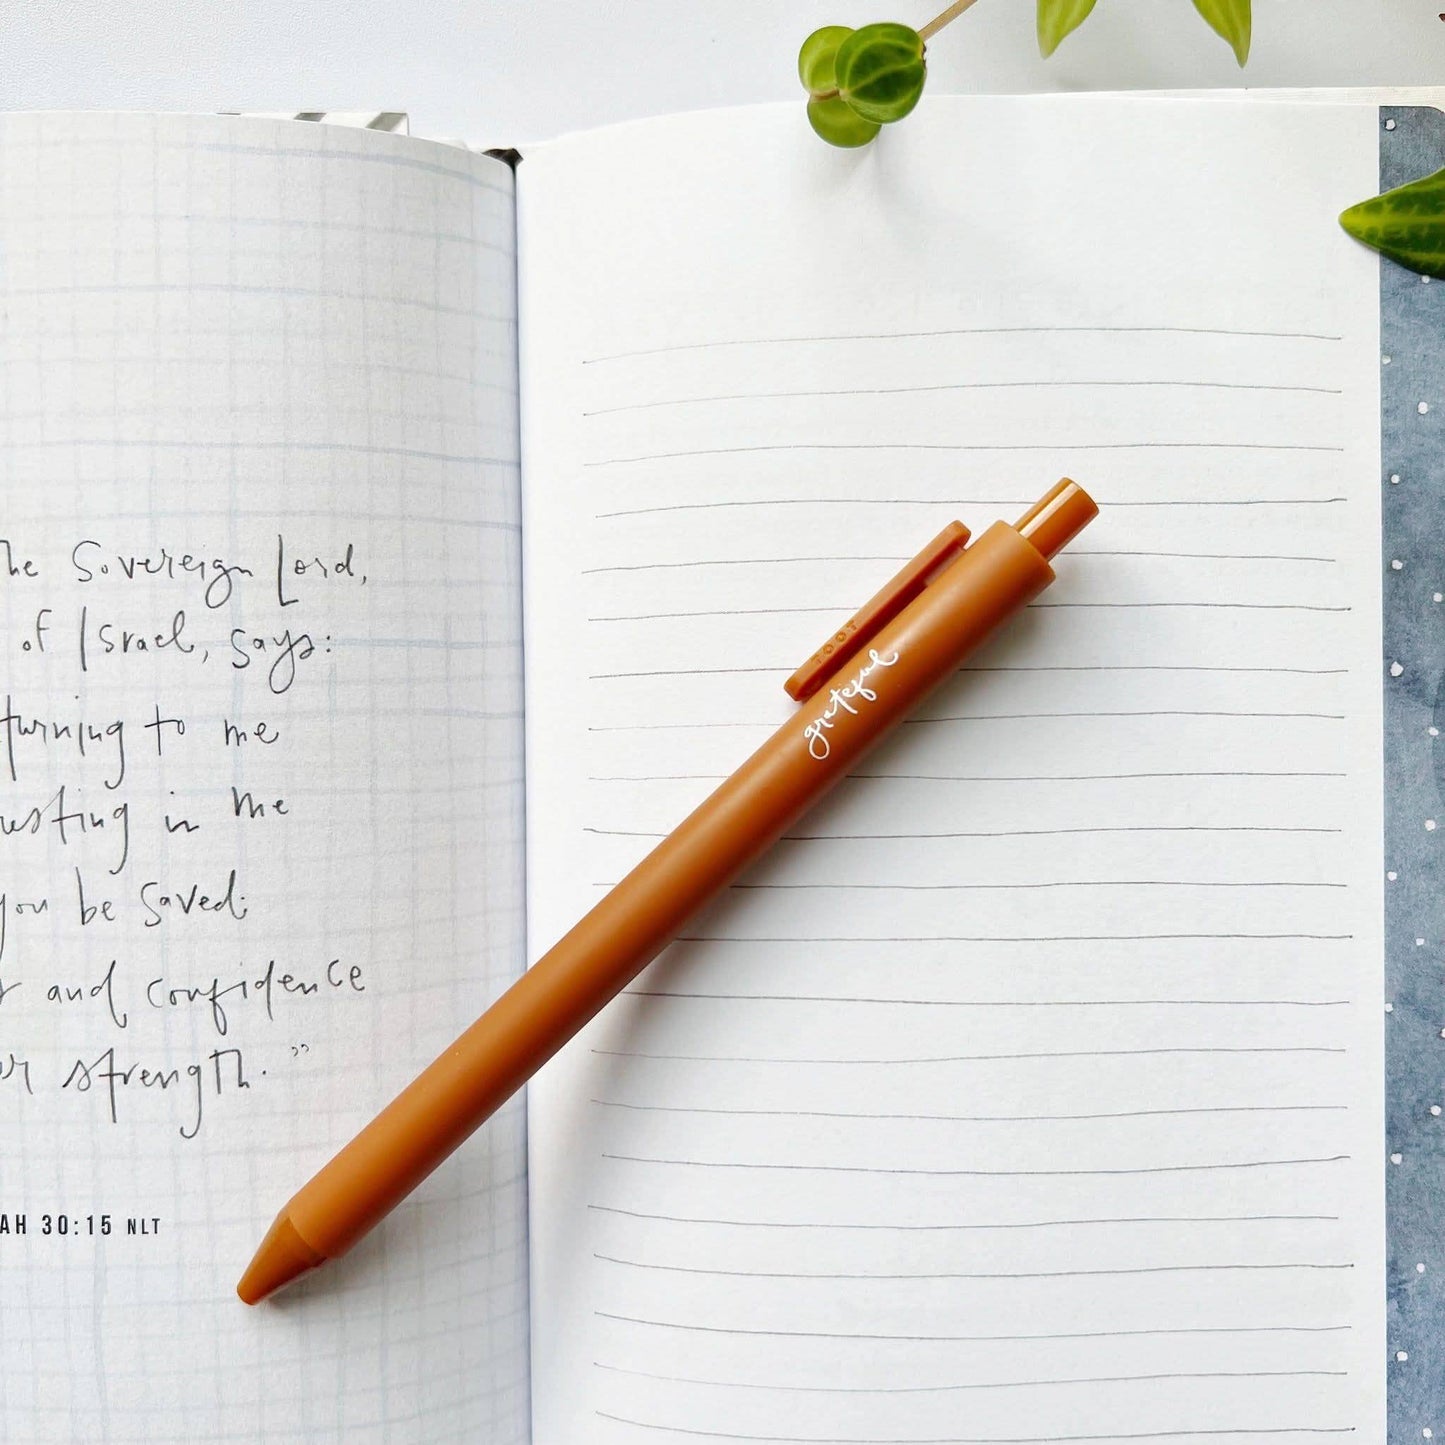 he Sovereign Lord,
of Israel, says:
turning to me
resting in me
you be saved;
and confidence
or strength."
AH 30:15 NLT
TOOT
grateful